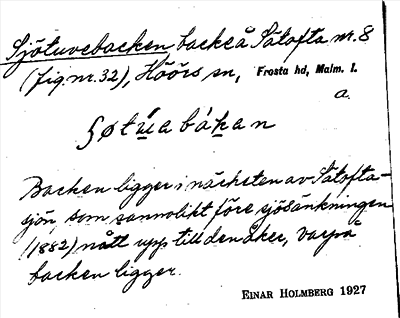 Sjötuvebacken backe å Sätofta nr. 8
(fig. nr. 32), Höörs sn, Frosta hd, Malm. l.
a.
ʃøtú̯abák̯an
Backen ligger i närheten av Sätofta-
sjön, som sannolikt före sjösänkningen
(1882) nått upp till den åker, varpå
backen ligger.
EINAR HOLMBERG 1927